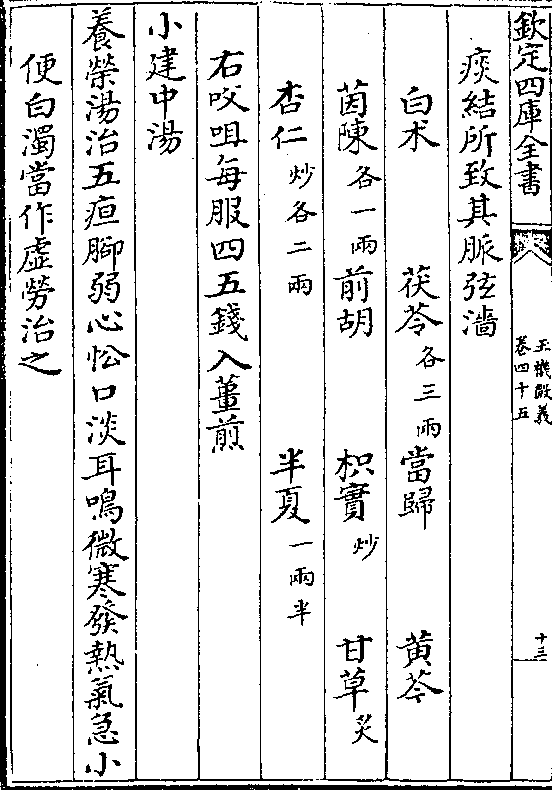 欽定四庫全書
玉機微義
卷四十五
十三
痰結所致其脈弦濇
白术 茯苓各三兩當歸 黄芩
茵陳各一兩前胡 枳實炒 甘草炙
杏仁炒各二兩 半夏一兩半
右㕮咀每服四五錢入薑煎
小建中湯
養榮湯治五疸脚弱心忪口淡耳鳴微寒發熱氣急小
便白濁當作虛勞治之